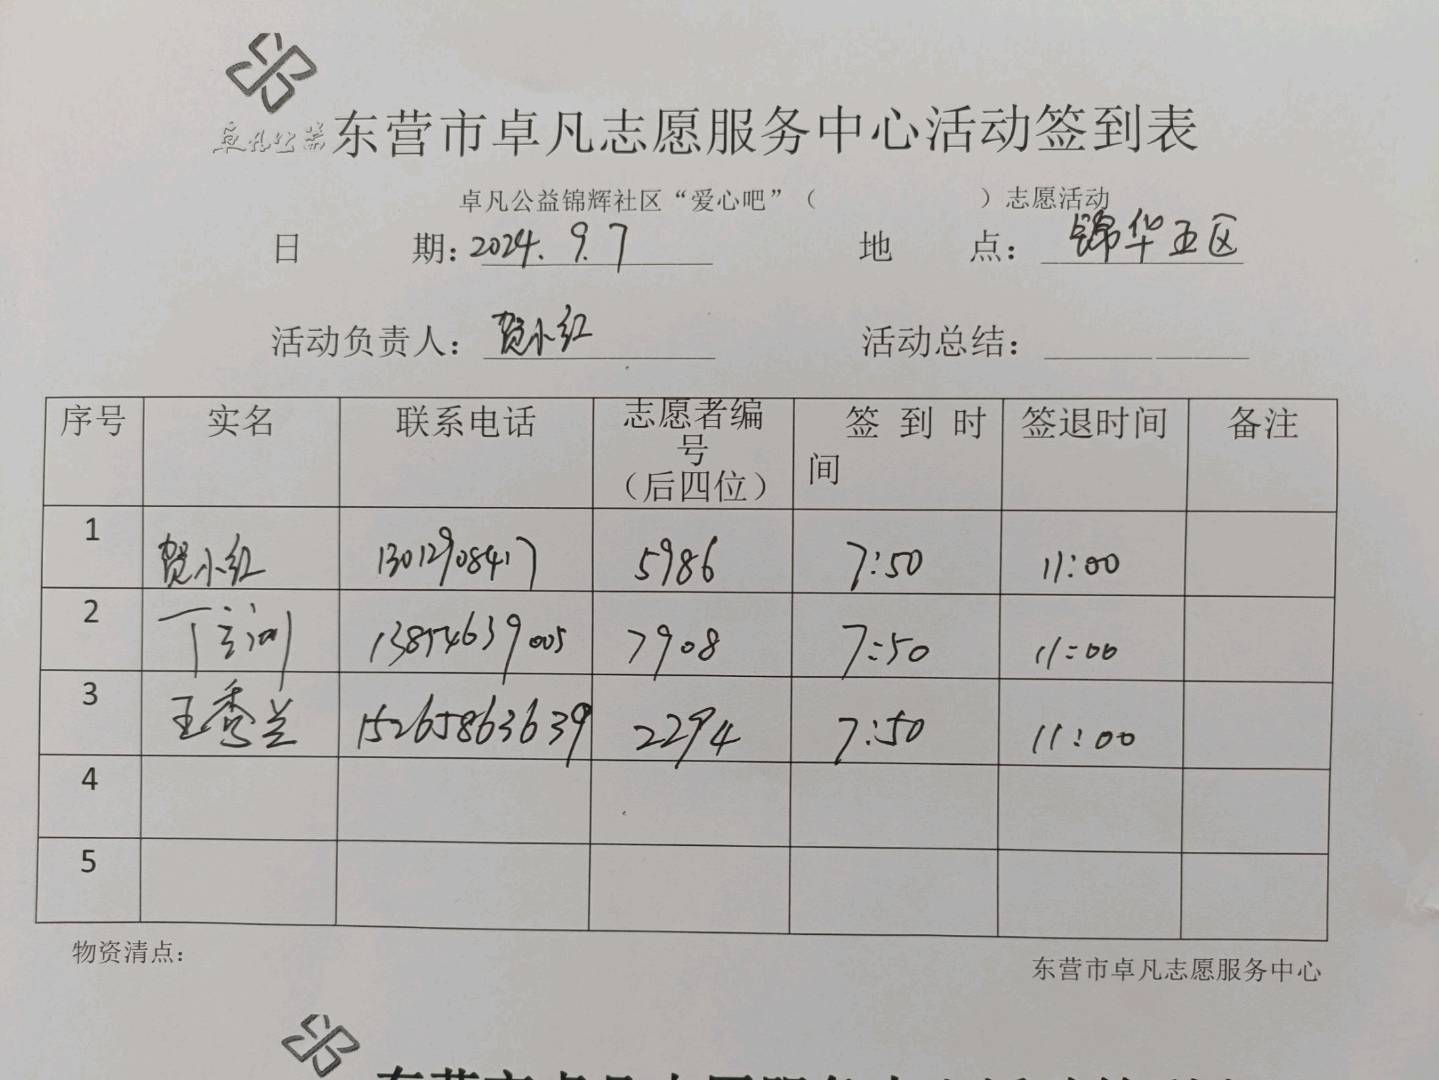 卓凡公益
东营市卓凡志愿服务中心活动签到表
卓凡公益锦辉社区“爱心吧”（ ）志愿活动
日 期：2024.9.7 地 点：锦华五区
活动负责人：贺小红 活动总结：
序号 实名 联系电话 志愿者编号（后四位） 签到时间 签退时间 备注
1 贺小红 13012908417 5986 7:50 11:00
2 丁 13854639005 7908 7:50 11:00
3 王秀兰 15265863639 2294 7:50 11:00
4
5
物资清点：
东营市卓凡志愿服务中心